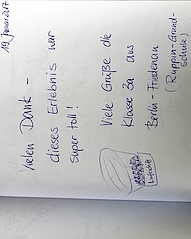 19. Januar 2017
Vielen Dank –
dieses Erlebnis war
super toll!
Viele Grüße die
Klasse 3a aus
Berlin-Friedenau
(Ruppin-Grund-
schule)